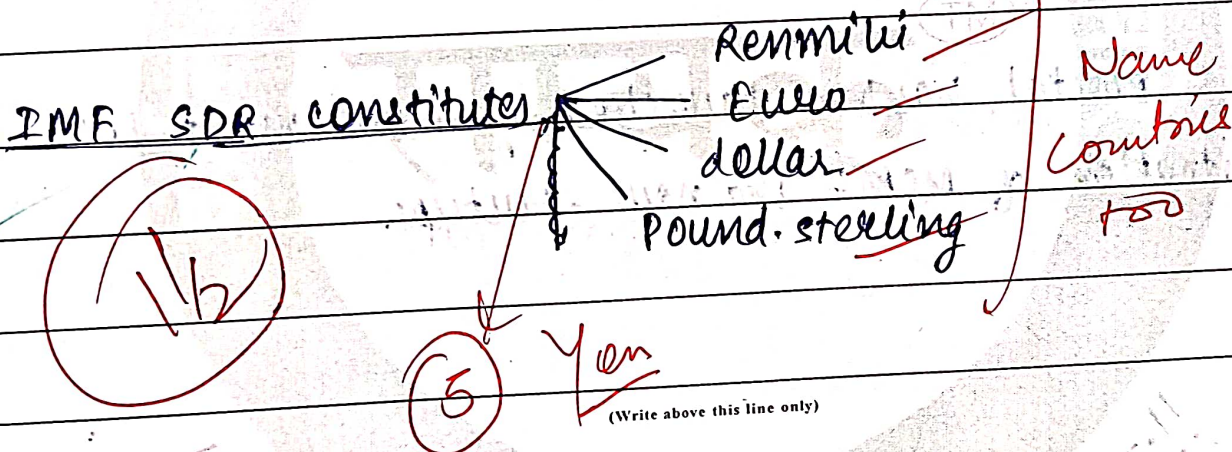 Renminbi
IMF SDR constitutes
Euro
dollar
Pound. sterling
Name
Countries
too
1 1/2
5 Yen
(Write above this line only)